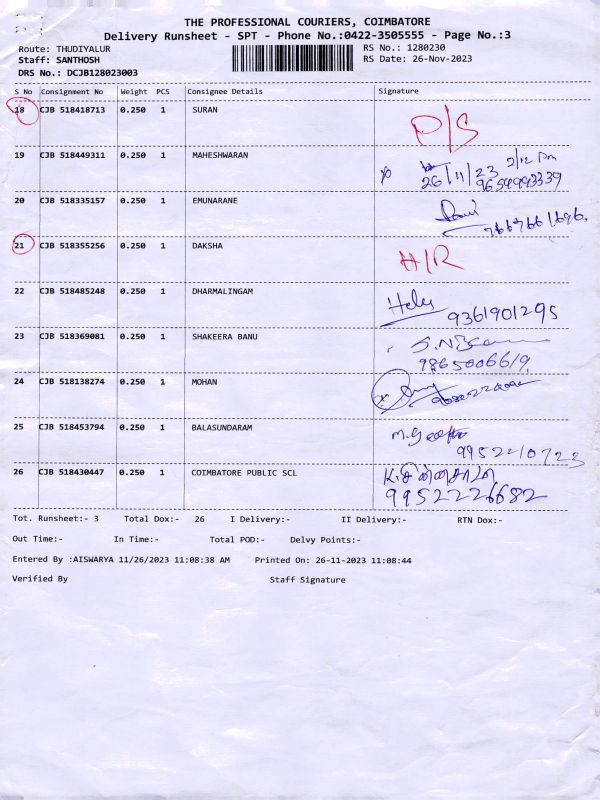 THE PROFESSIONAL COURIERS, COIMBATORE
Delivery Runsheet - SPT - Phone No.:0422-3505555 - Page No.:3
Route: THUDIYALUR RS No.: 1280230
Staff: SANTHOSH RS Date: 26-Nov-2023
DRS No.: DCJB128023003
S No Consignment No Weight PCS Consignee Details Signature
18 CJB 518418713 0.250 1 SURAN P/S
19 CJB 518449311 0.250 1 MAHESHWARAN
26/11/23
20 CJB 518335157 0.250 1 EMUNARANE
21 CJB 518355256 0.250 1 DAKSHA H/R
22 CJB 518485248 0.250 1 DHARMALINGAM
9361901295
23 CJB 518369081 0.250 1 SHAKEERA BANU
9865006619.
24 CJB 518138274 0.250 1 MOHAN
25 CJB 518453794 0.250 1 BALASUNDARAM
9952210723
26 CJB 518430447 0.250 1 COIMBATORE PUBLIC SCL
9952226682
Tot. Runsheet:- 3 Total Dox:- 26 I Delivery:- II Delivery:- RTN Dox:-
Out Time:- In Time:- Total POD:- Delvy Points:-
Entered By :AISWARYA 11/26/2023 11:08:38 AM Printed On: 26-11-2023 11:08:44
Verified By Staff Signature